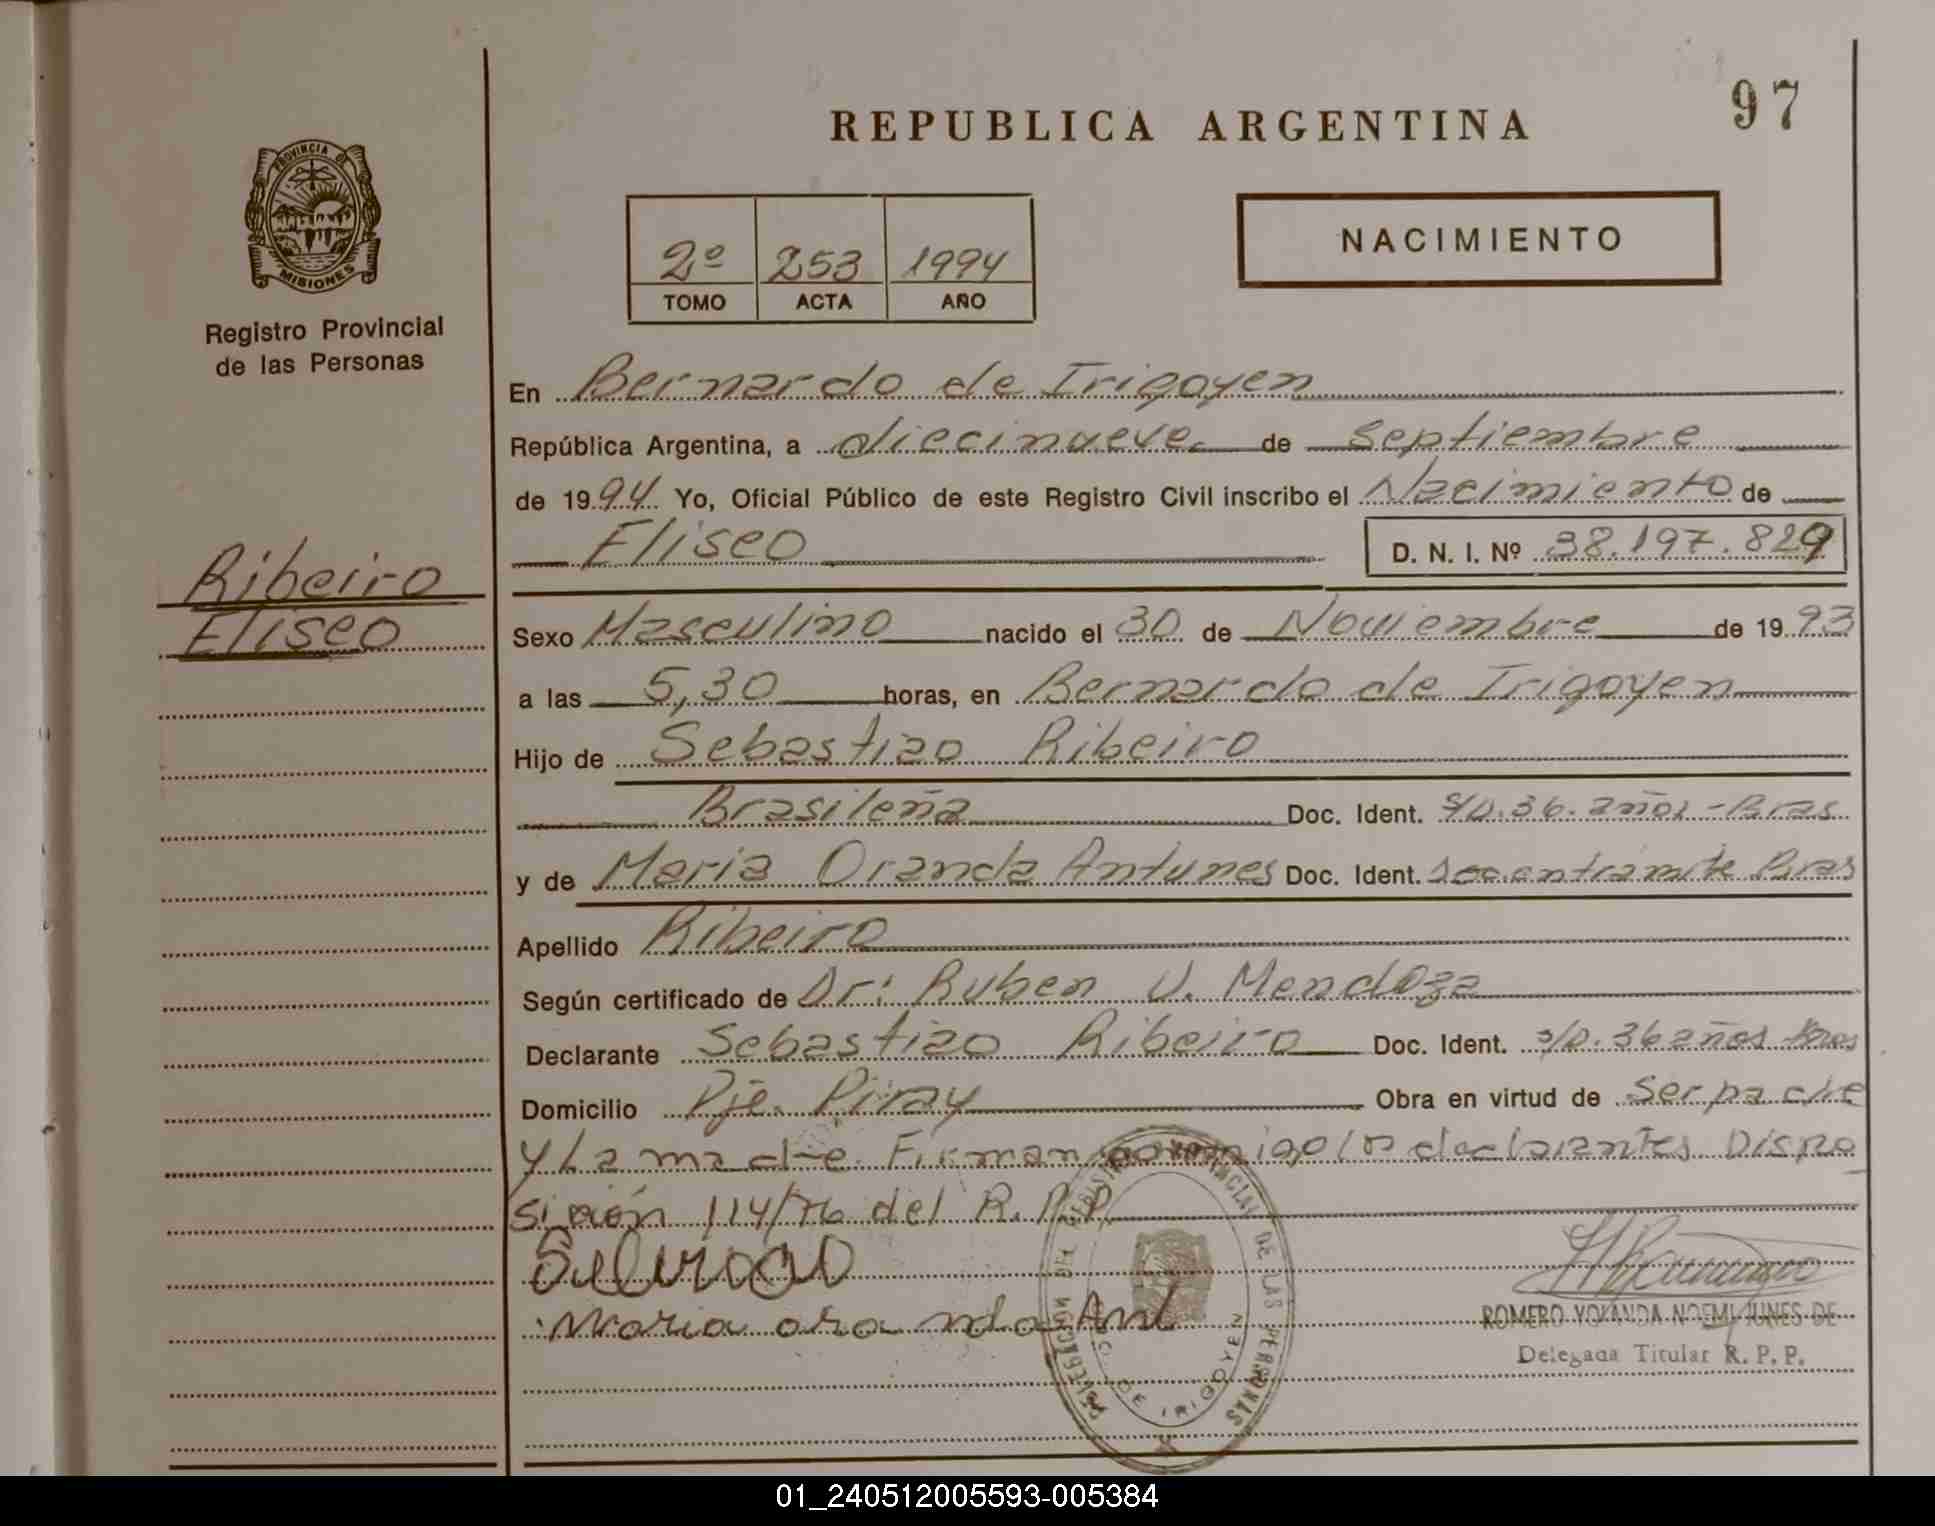 97
REPUBLICA ARGENTINA
PROVINCIA DE
MISIONES
Registro Provincial
de las Personas
2º 253 1994
TOMO ACTA AÑO
NACIMIENTO
En Bernardo de Irigoyen
República Argentina, a diecinueve de Septiembre
de 1994 Yo, Oficial Público de este Registro Civil inscribo el Nacimiento de
Eliseo D. N. I. Nº 38.197.829
Ribeiro
Eliseo
Sexo Masculino nacido el 30 de Noviembre de 1993
a las 5,30 horas, en Bernardo de Irigoyen
Hijo de Sebastiao Ribeiro
Brasileña Doc. Ident. s/D. 36. años - Bras
y de Maria Oranda Antunes Doc. Ident. Doc. en trámite Bras
Apellido Ribeiro
Según certificado de Dr: Ruben V. Mendoza
Declarante Sebastiao Ribeiro Doc. Ident. s/D. 36 años Bras
Domicilio Pje. Piray Obra en virtud de Ser padre
y la madre. Firman conmigo los declarantes. Dispo
sición 114/76 del R.P.P.
Maria oranda Ant
REGISTRO PROVINCIAL DE LAS PERSONAS
DE IRIGOYEN
ROMERO YOLANDA NOEMI JUNES DE
Delegada Titular R. P. P.
01_240512005593-005384